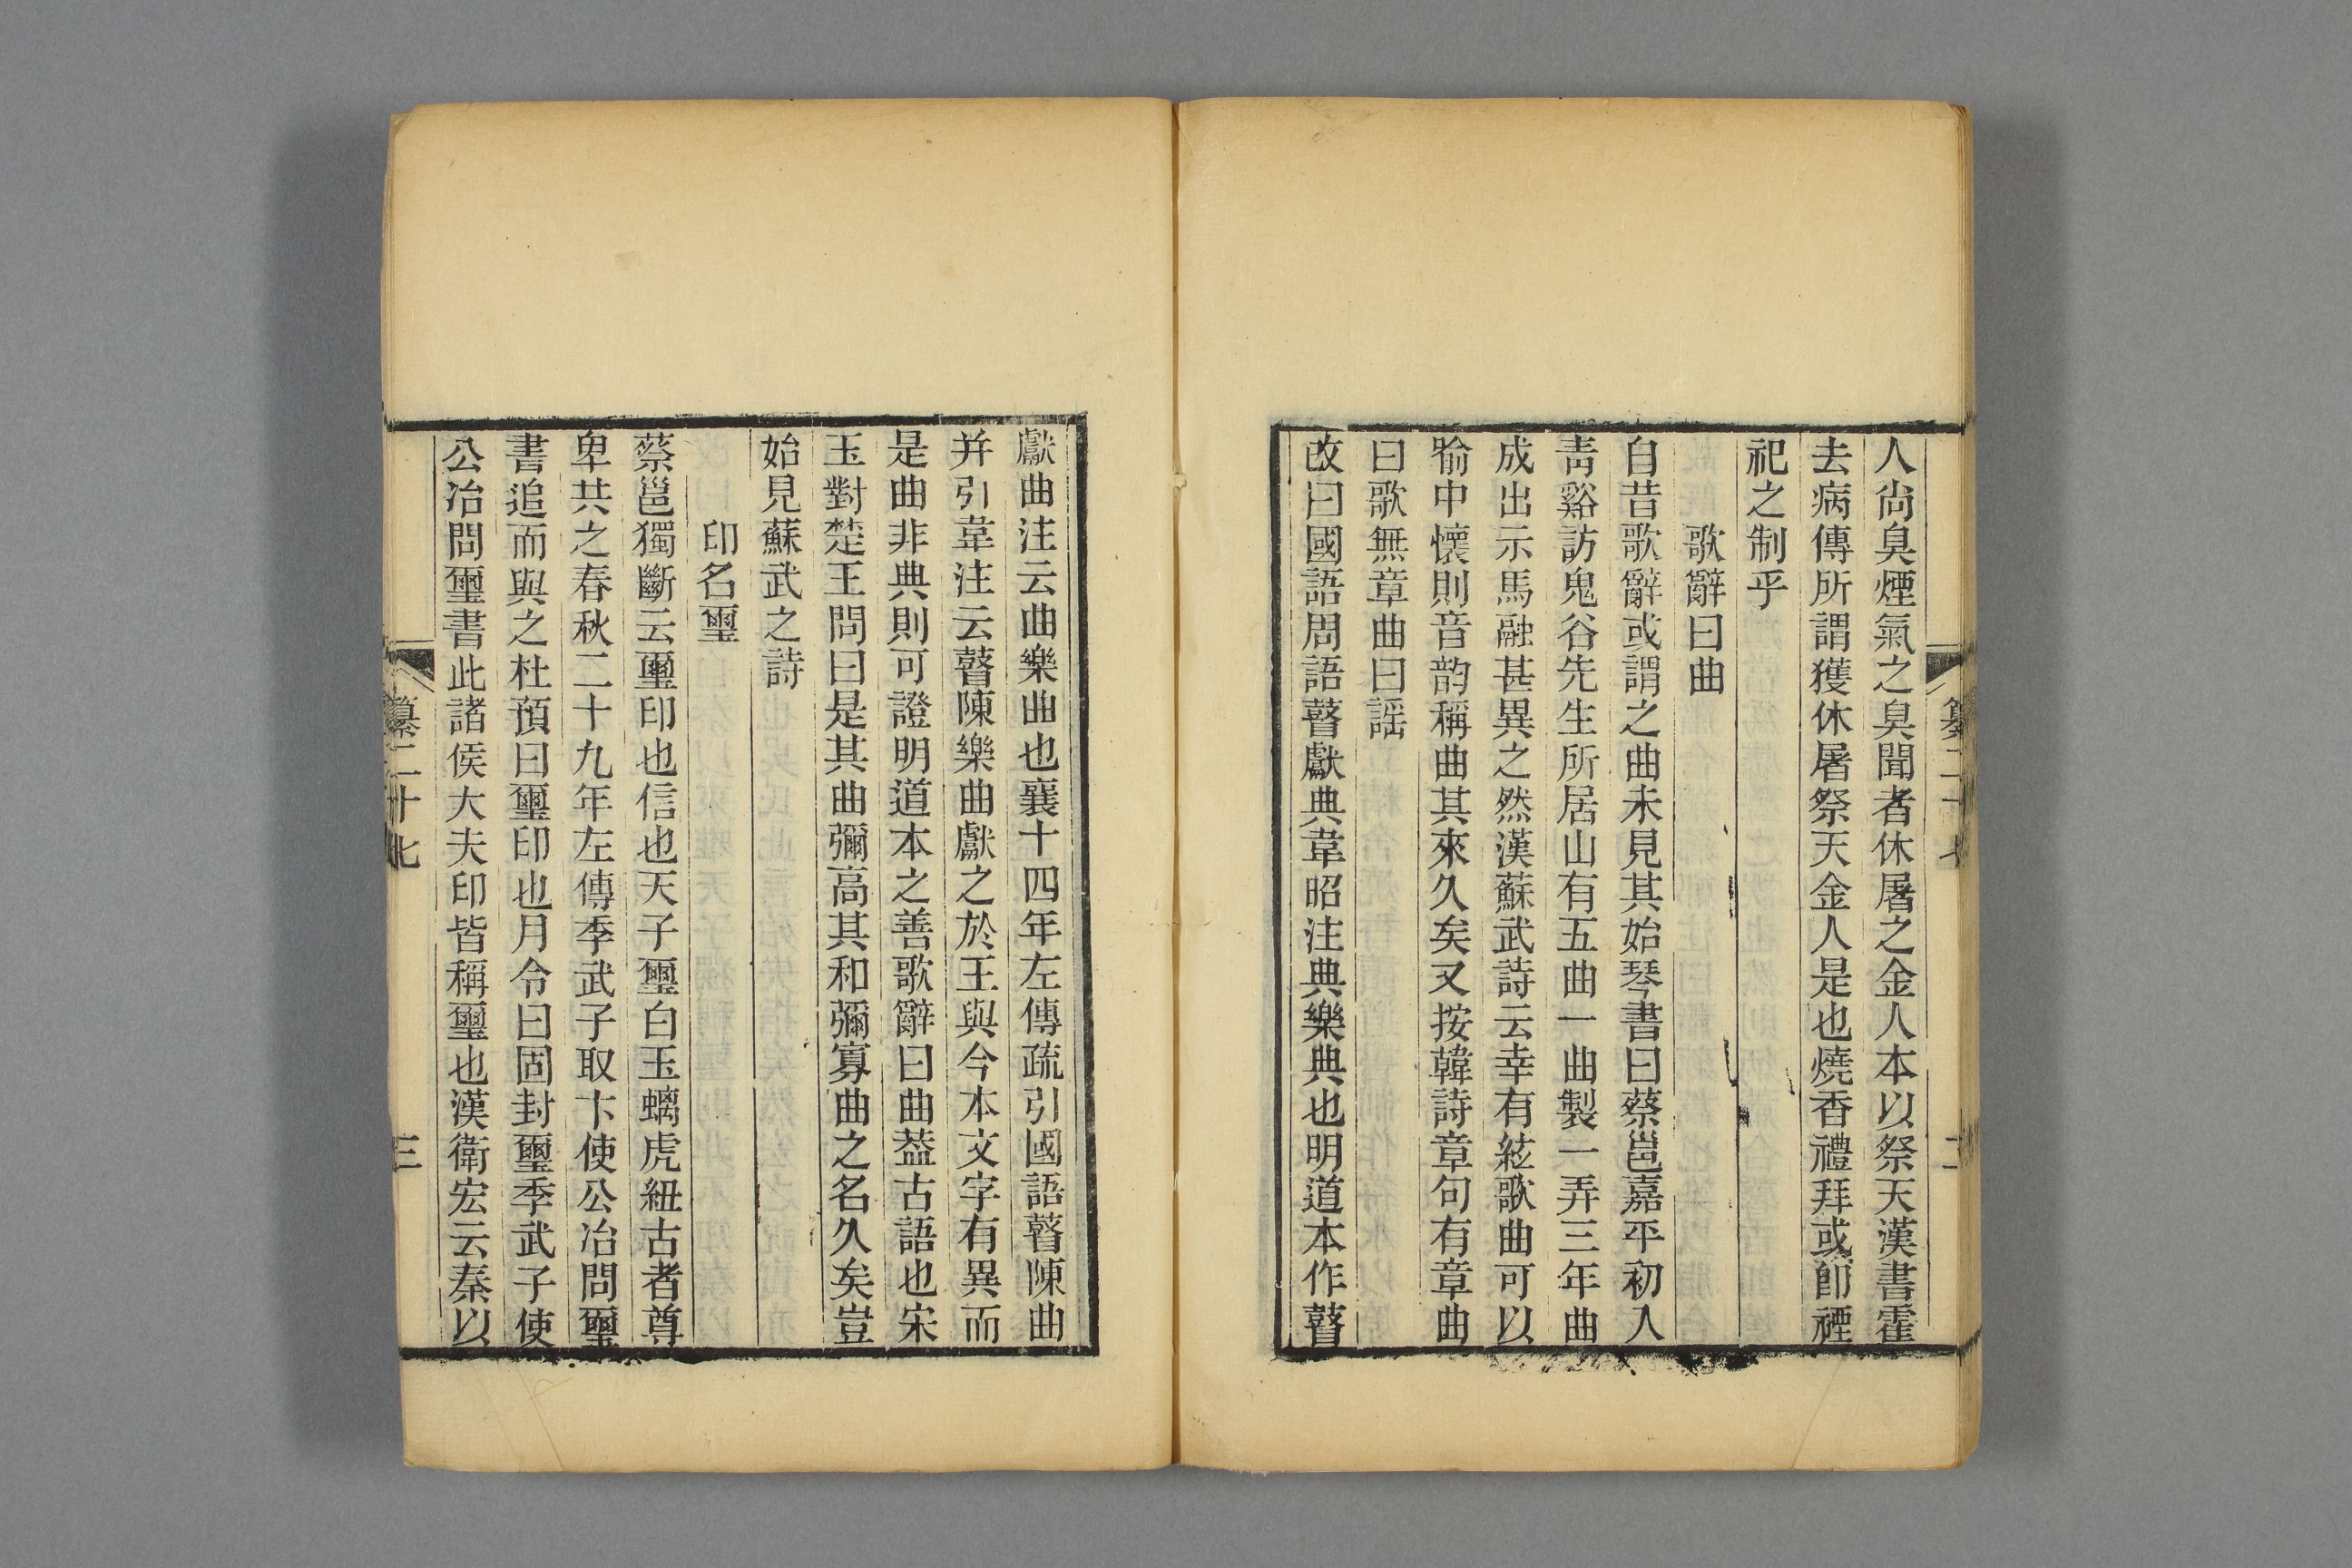 纂二十七
二
人尙臭煙氣之臭聞者休屠之金人本以祭天漢書霍
去病傳所謂獲休屠祭天金人是也燒香禮拜或卽禋
祀之制乎
歌辭曰曲
自昔歌辭或謂之曲未見其始琴書曰蔡邕嘉平初入
靑谿訪鬼谷先生所居山有五曲一曲製一弄三年曲
成出示馬融甚異之然漢蘇武詩云幸有絃歌曲可以
喻中懷則音韵稱曲其來久矣又按韓詩章句有章曲
曰歌無章曲曰謡
攺曰國語周語瞽獻典韋昭注典樂典也明道本作瞽
獻曲注云曲樂曲也襄十四年左傳疏引國語瞽陳曲
并引韋注云瞽陳樂曲獻之於王與今本文字有異而
是曲非典則可證明道本之善歌辭曰曲葢古語也宋
玉對楚王問曰是其曲彌高其和彌寡曲之名久矣豈
始見蘇武之詩
印名璽
蔡邕獨斷云璽印也信也天子璽白玉螭虎紐古者尊
卑共之春秋二十九年左傳季武子取卞使公冶問璽
書追而與之杜預曰璽印也月令曰固封璽季武子使
公冶問璽書此諸侯大夫印皆稱璽也漢衛宏云秦以
纂二十七
三